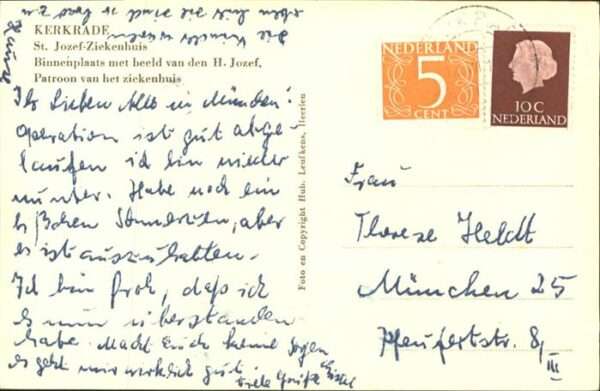 KERKRADE
St. Jozef-Ziekenhuis
Binnenplaats met beeld van den H. Jozef,
Patroon van het ziekenhuis
Ihr Lieben Alle in München!
Operation ist gut abge-
laufen ich bin wieder
munter. Habe noch ein
bißchen Schmerzen, aber
es ist auszuhalten.
Ich bin froh, daß ich
es nun überstanden
habe. Macht Euch keine Sorgen
es geht mir wirklich gut.
Viele Grüße
Foto en Copyright Hub. Leufkens, Heerlen
NEDERLAND
5
CENT
10 C
NEDERLAND
Frau
Therese Heldt
München 25
Pfeufferstr. 8/III